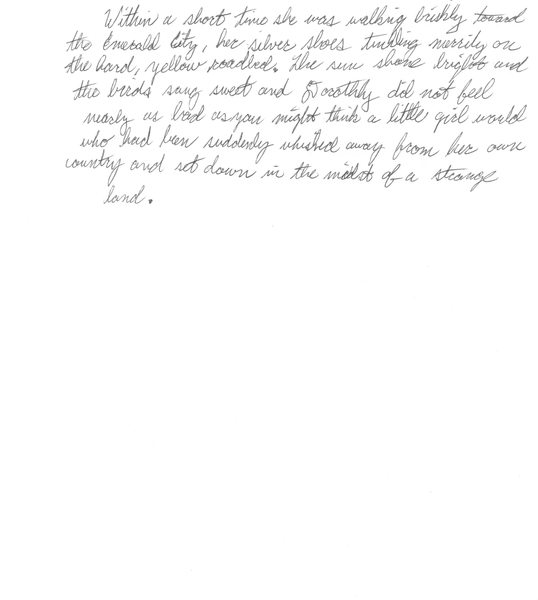 Within a short time she was walking briskly toward
the Emerald City, her silver shoes tinkling merrily on
the hard, yellow roadbed. The sun shone bright and
the birds sang sweet and Dorothy did not feel
nearly as bad as you might think a little girl would
who had been suddenly whisked away from her own
country and set down in the midst of a strange
land.